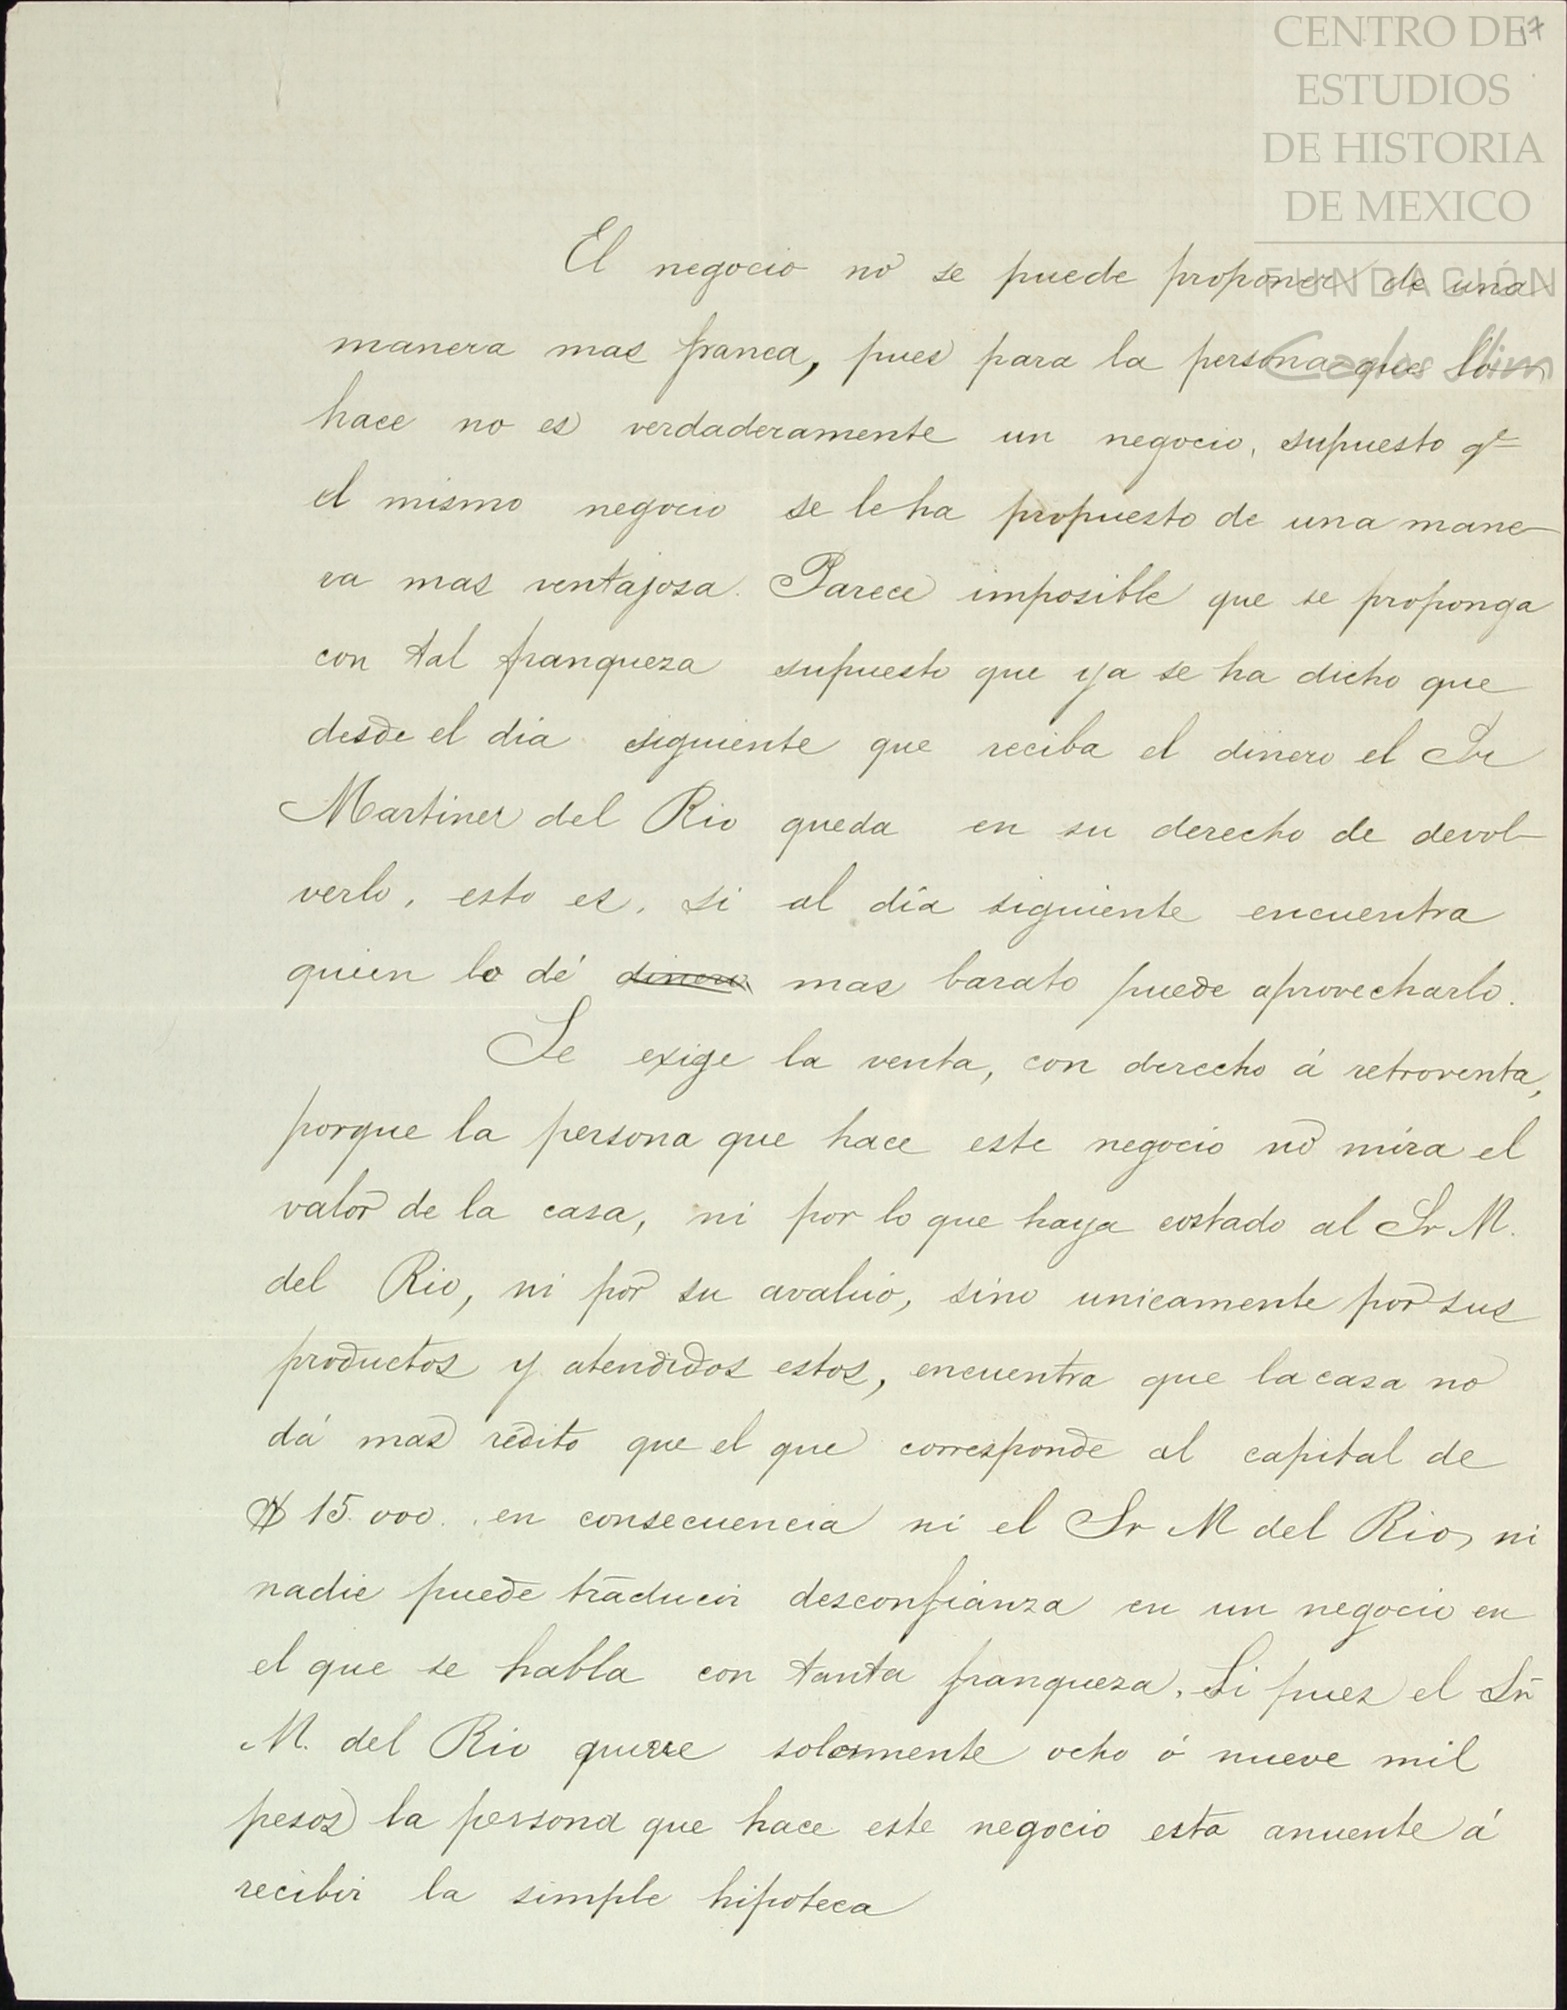 CENTRO DE
ESTUDIOS
DE HISTORIA
DE MEXICO
FUNDACIÓN
Carlos Slim
17
El negocio no se puede proponer de una
manera mas franca, pues para la persona que lo
hace no es verdaderamente un negocio, supuesto qe
el mismo negocio se le ha propuesto de una mane-
ra mas ventajosa. Parece imposible que se proponga
con tal franqueza supuesto que ya se ha dicho que
desde el dia siguiente que reciba el dinero el Sr
Martinez del Rio queda en su derecho de devol-
verlo, esto es, si al día siguiente encuentra
quien lo dé dinero mas barato puede aprovecharlo.
Se exige la venta, con derecho á retroventa,
porque la persona que hace este negocio no mira el
valor de la casa, ni por lo que haya costado al Sr M.
del Rio, ni por su avalúo, sino unicamente por sus
productos y atendidos estos, encuentra que la casa no
dá mas rédito que el que corresponde al capital de
$ 15.000. en consecuencia ni el Sr M del Rio, ni
nadie puede traducir desconfianza en un negocio en
el que se habla con tanta franqueza. Si pues el Sr
M. del Rio quiere solamente ocho ó nueve mil
pesos la persona que hace este negocio esta anuente á
recibir la simple hipoteca